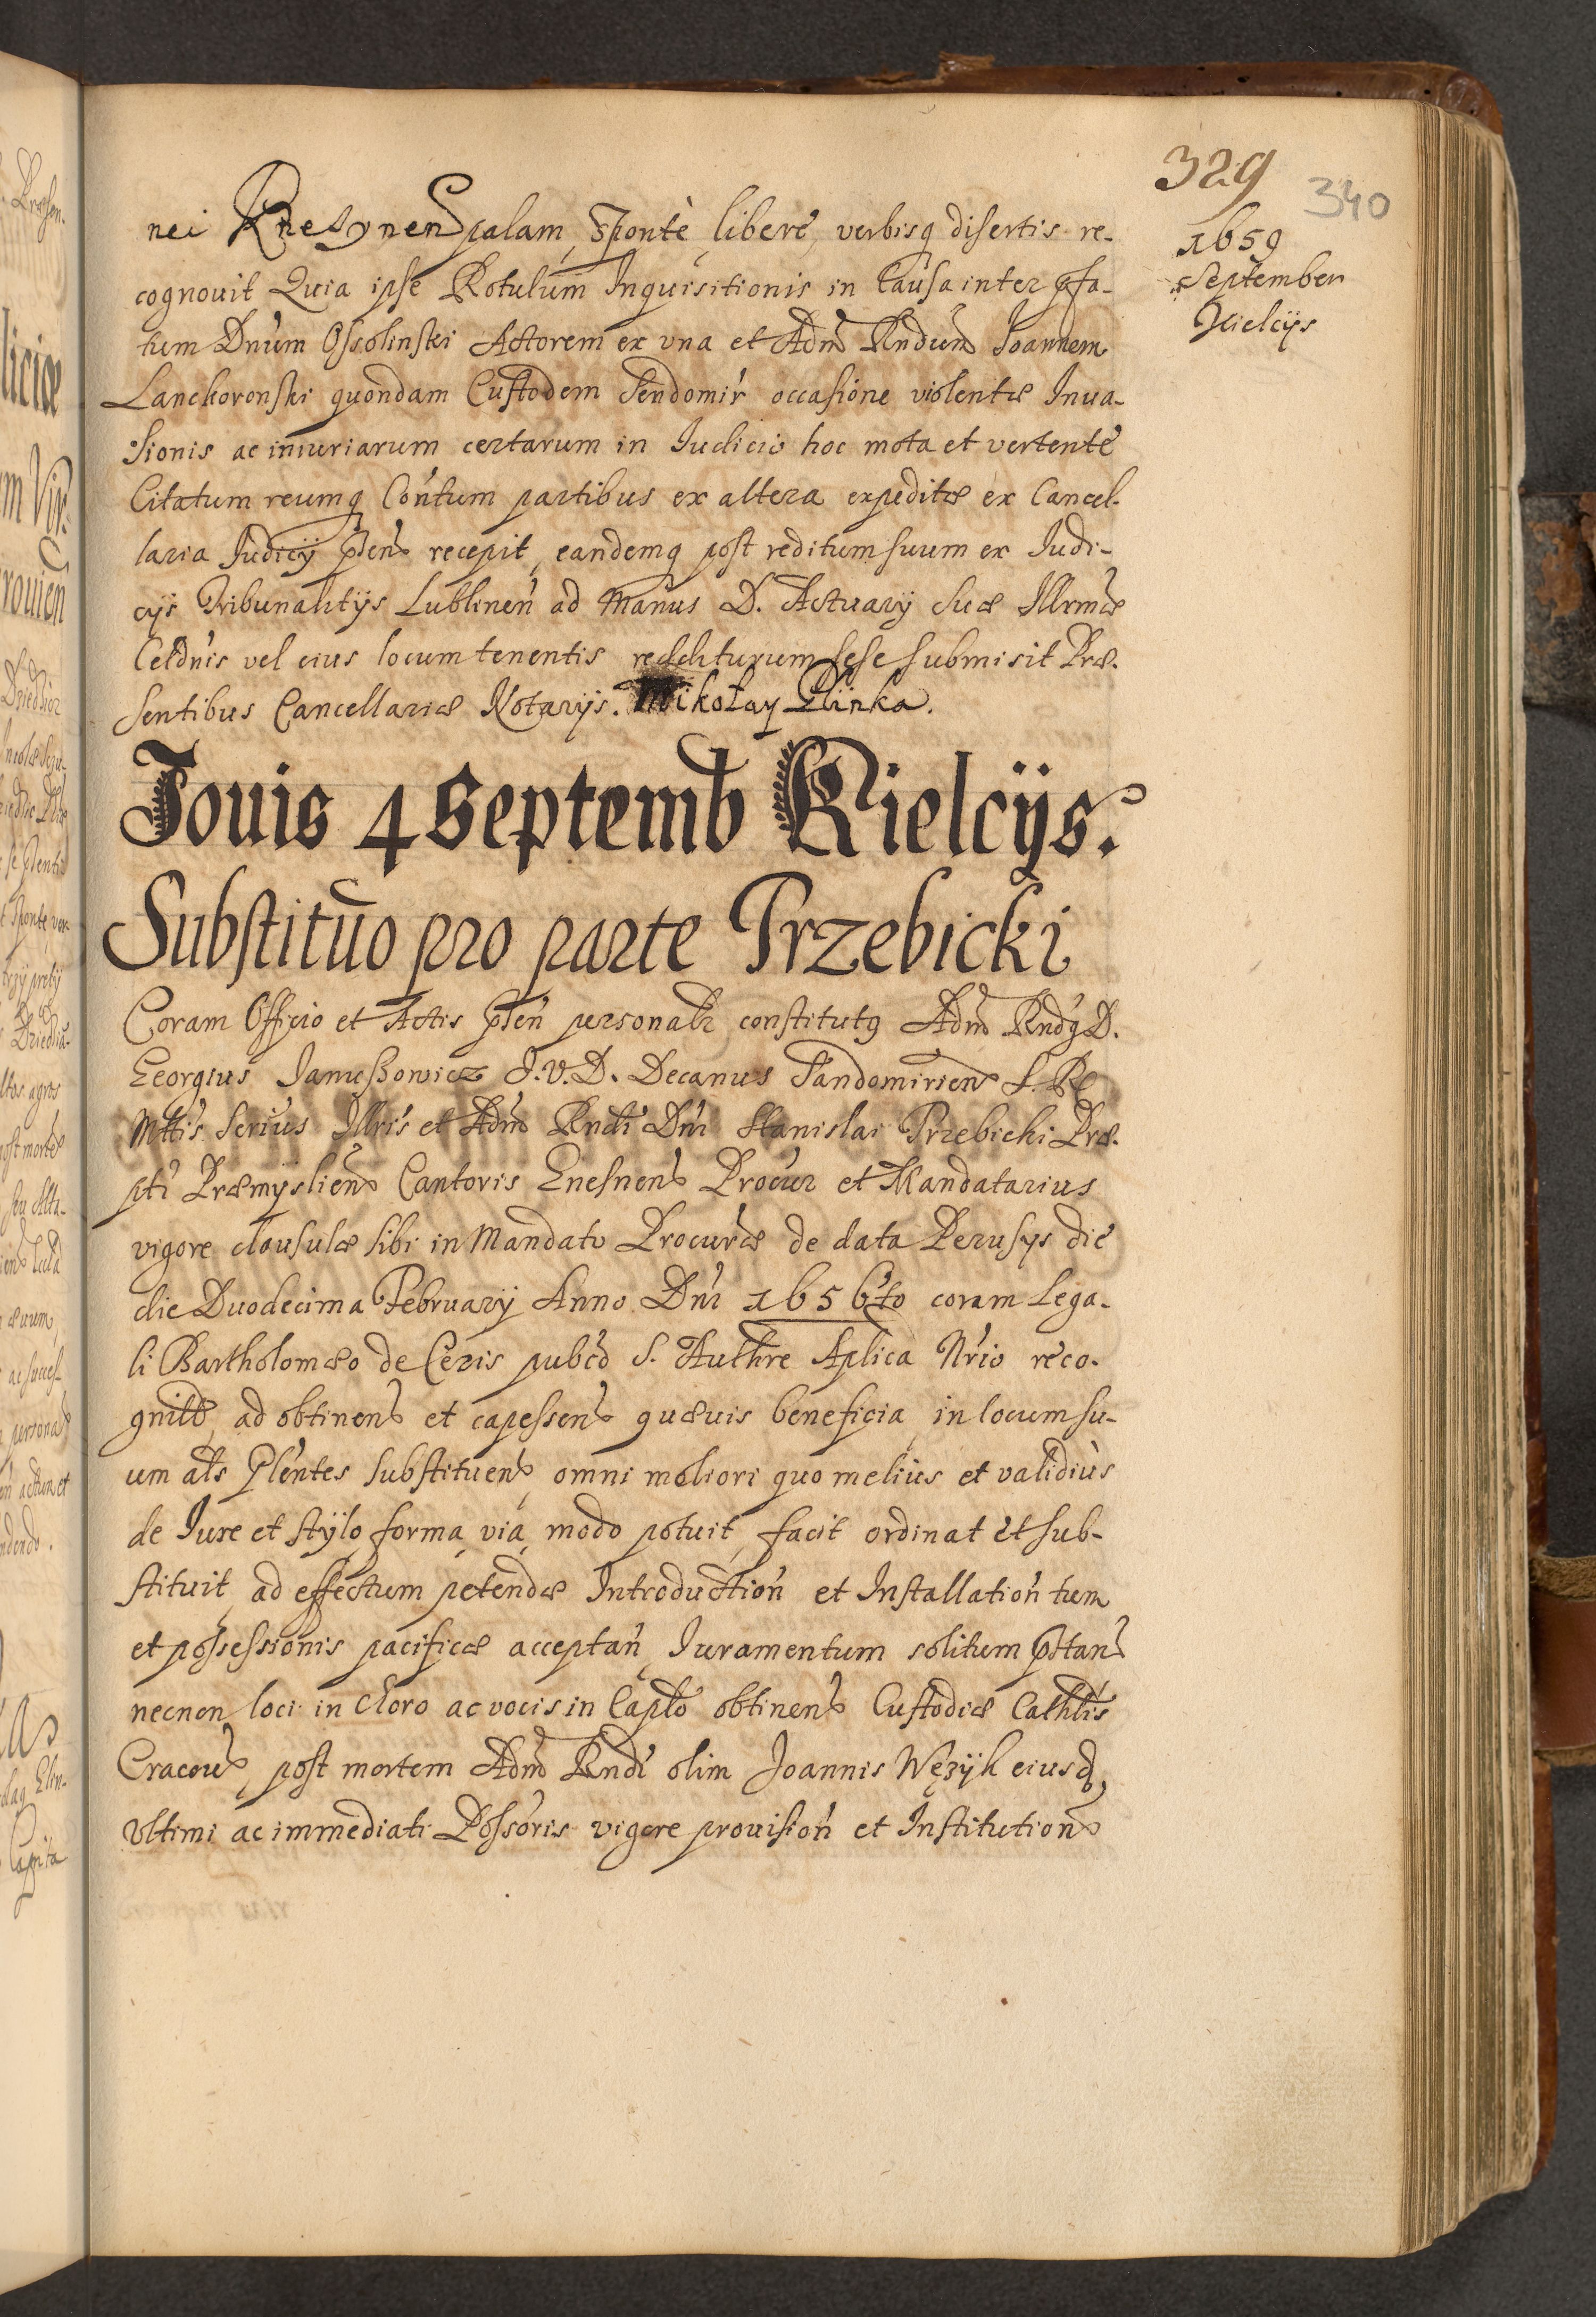 329
340
1659
September
Kielcijs
nei Knesynen palam, sponte, libere, verbisq disertis re-
cognouit Quia ipse Rotulum Inquisitionis in Causa inter pfa-
tum Dnum Ossolinski Actorem ex vna et Adm Rndum Joannem
Lanckoronski quondam Custodem Sendomir occasione violentæ Inua-
sionis ac iniuriarum certarum in Iudicio hoc mota et vertente
Citatum reumq Contum partibus ex altera expeditæ ex Cancel-
laria Judicij pñs recepit, eandemq post reditum suum ex Judi-
cijs Tribunalitijs Lublinen ad Manus D. Actuarij Suæ Illrmæ
Celdnis vel eius locum tenentis rediturum sese submisit Præ-
sentibus Cancellariæ Notarijs. Mikołay Glinka.
Jouis 4 Septemb Kielcijs.
Substituo pro parte Przebicki
Coram Officio et Actis pñ personalr constitutg Adm Rndg D.
Georgius Januszowicz J.V.D. Decanus Sandomirien S. R.
Mttis Serius Illris et Adm Rndi Dni Stanislai Przebicki Præ-
pti Præmyslien Cantoris Gnesnen Procur et Mandatarius
vigore clausulæ sibi in Mandato Procuræ de data Perusys die
die Duodecima February Anno Dni 1656to coram Lega-
li Bartholomæo de Ceris pubco S. Authre Aplica Nrio reco-
gnito, ad obtinen et capessen quæuis beneficia, in locum su-
um als Plentes substituen, omni moliori quo melius et validius
de Iure et stylo, forma, via, modo potuit, facit ordinat et sub-
stituit, ad effectum petendæ Introduction et Installation tum
et possessionis pacificæ acceptan, Iuramentum solitum pstan
necnon loci in Choro ac vocis in Caplo obtinen Custodiæ Cathlis
Cracou, post mortem Adm Rndi olim Joannis Wężyk eiusd,
Vltimi ac immediati Possoris vigore prouision et Institution